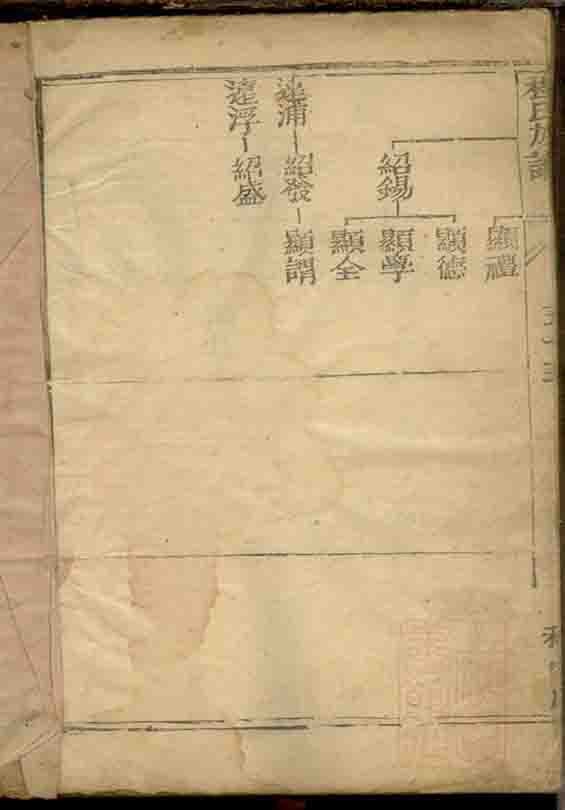 氏族譜
顯禮
顯德
紹錫
顯學
顯全
遠浦
紹發
顯謂
遠浮
紹盛